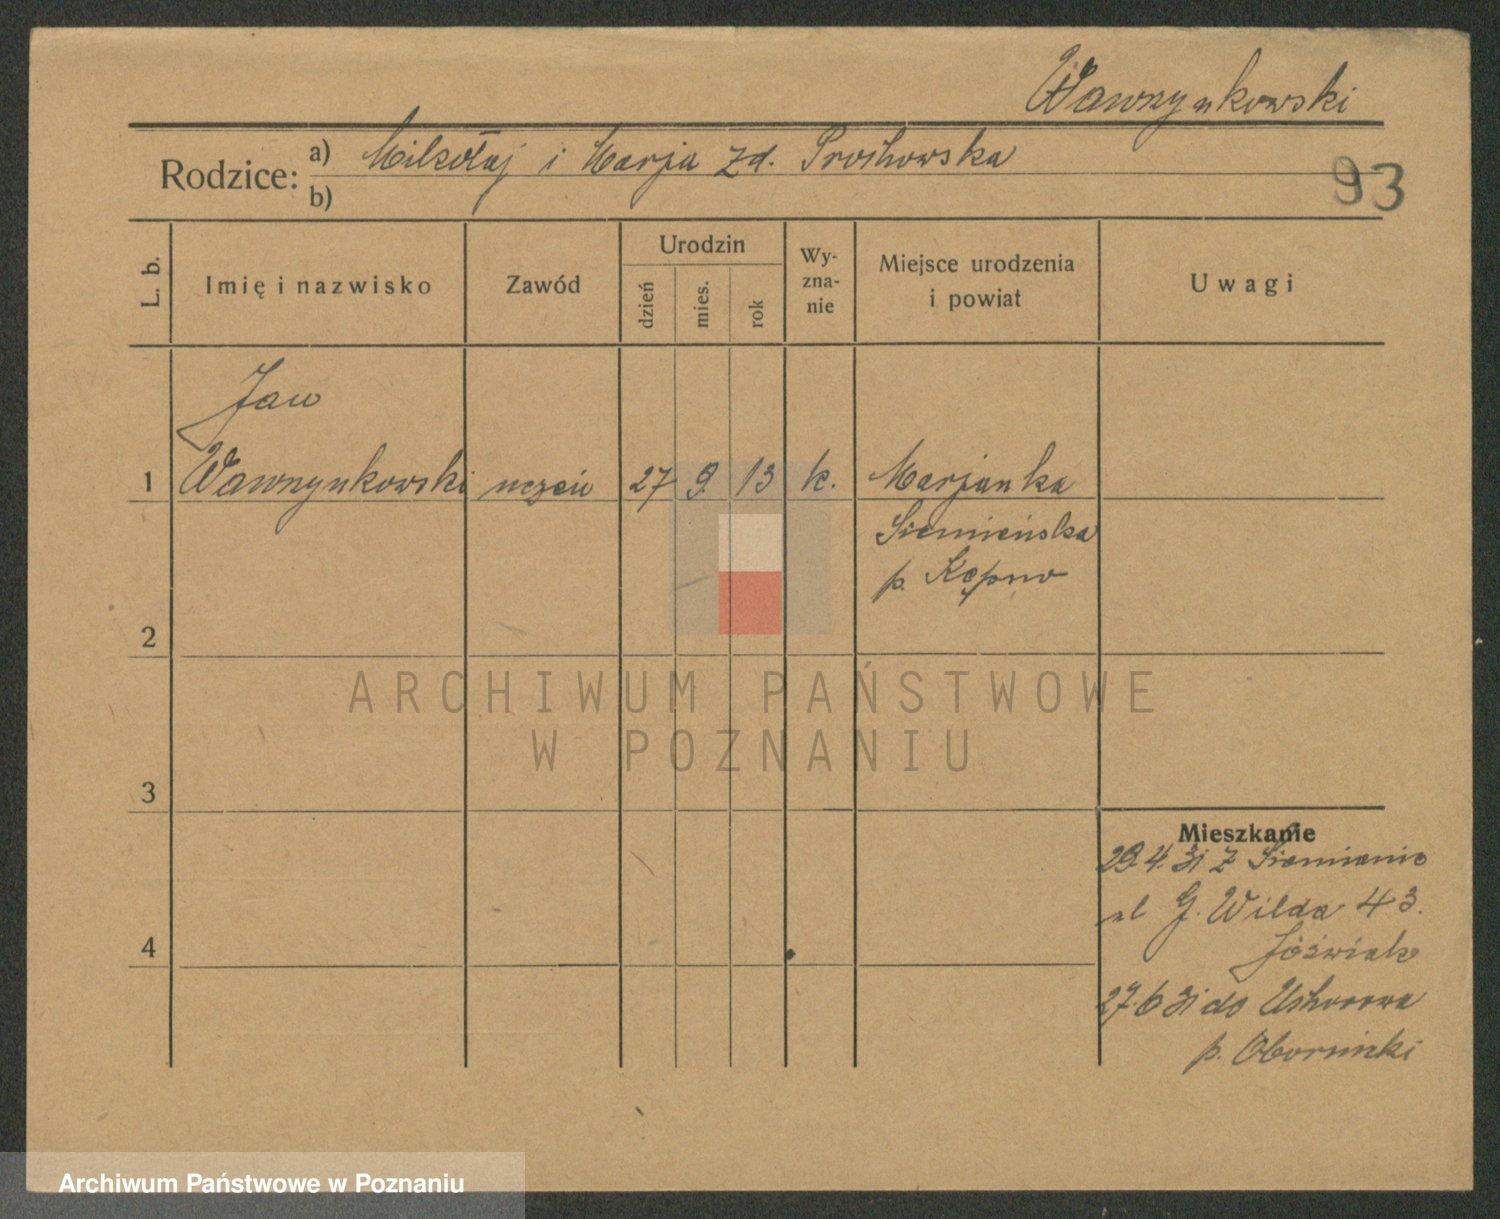 Wawrzynkowski
Rodzice: a) Mikołaj i Marja zd. Prochowska
b)
93
L. b.
Imię i nazwisko
Zawód
Urodzin
dzień
mies.
rok
Wy-
zna-
nie
Miejsce urodzenia
i powiat
Uwagi
Jan
1 Wawrzynkowski uczeń 27 9. 13 k. Marjanka
Siemieńska
p. Kępno
2
3
4
ARCHIWUM PAŃSTWOWE
W POZNANIU
Mieszkanie
29.4.31 z Siemianic
ul G. Wilda 43.
Jóźwiak
27.6 31 do
p. Obornicki
Archiwum Państwowe w Poznaniu